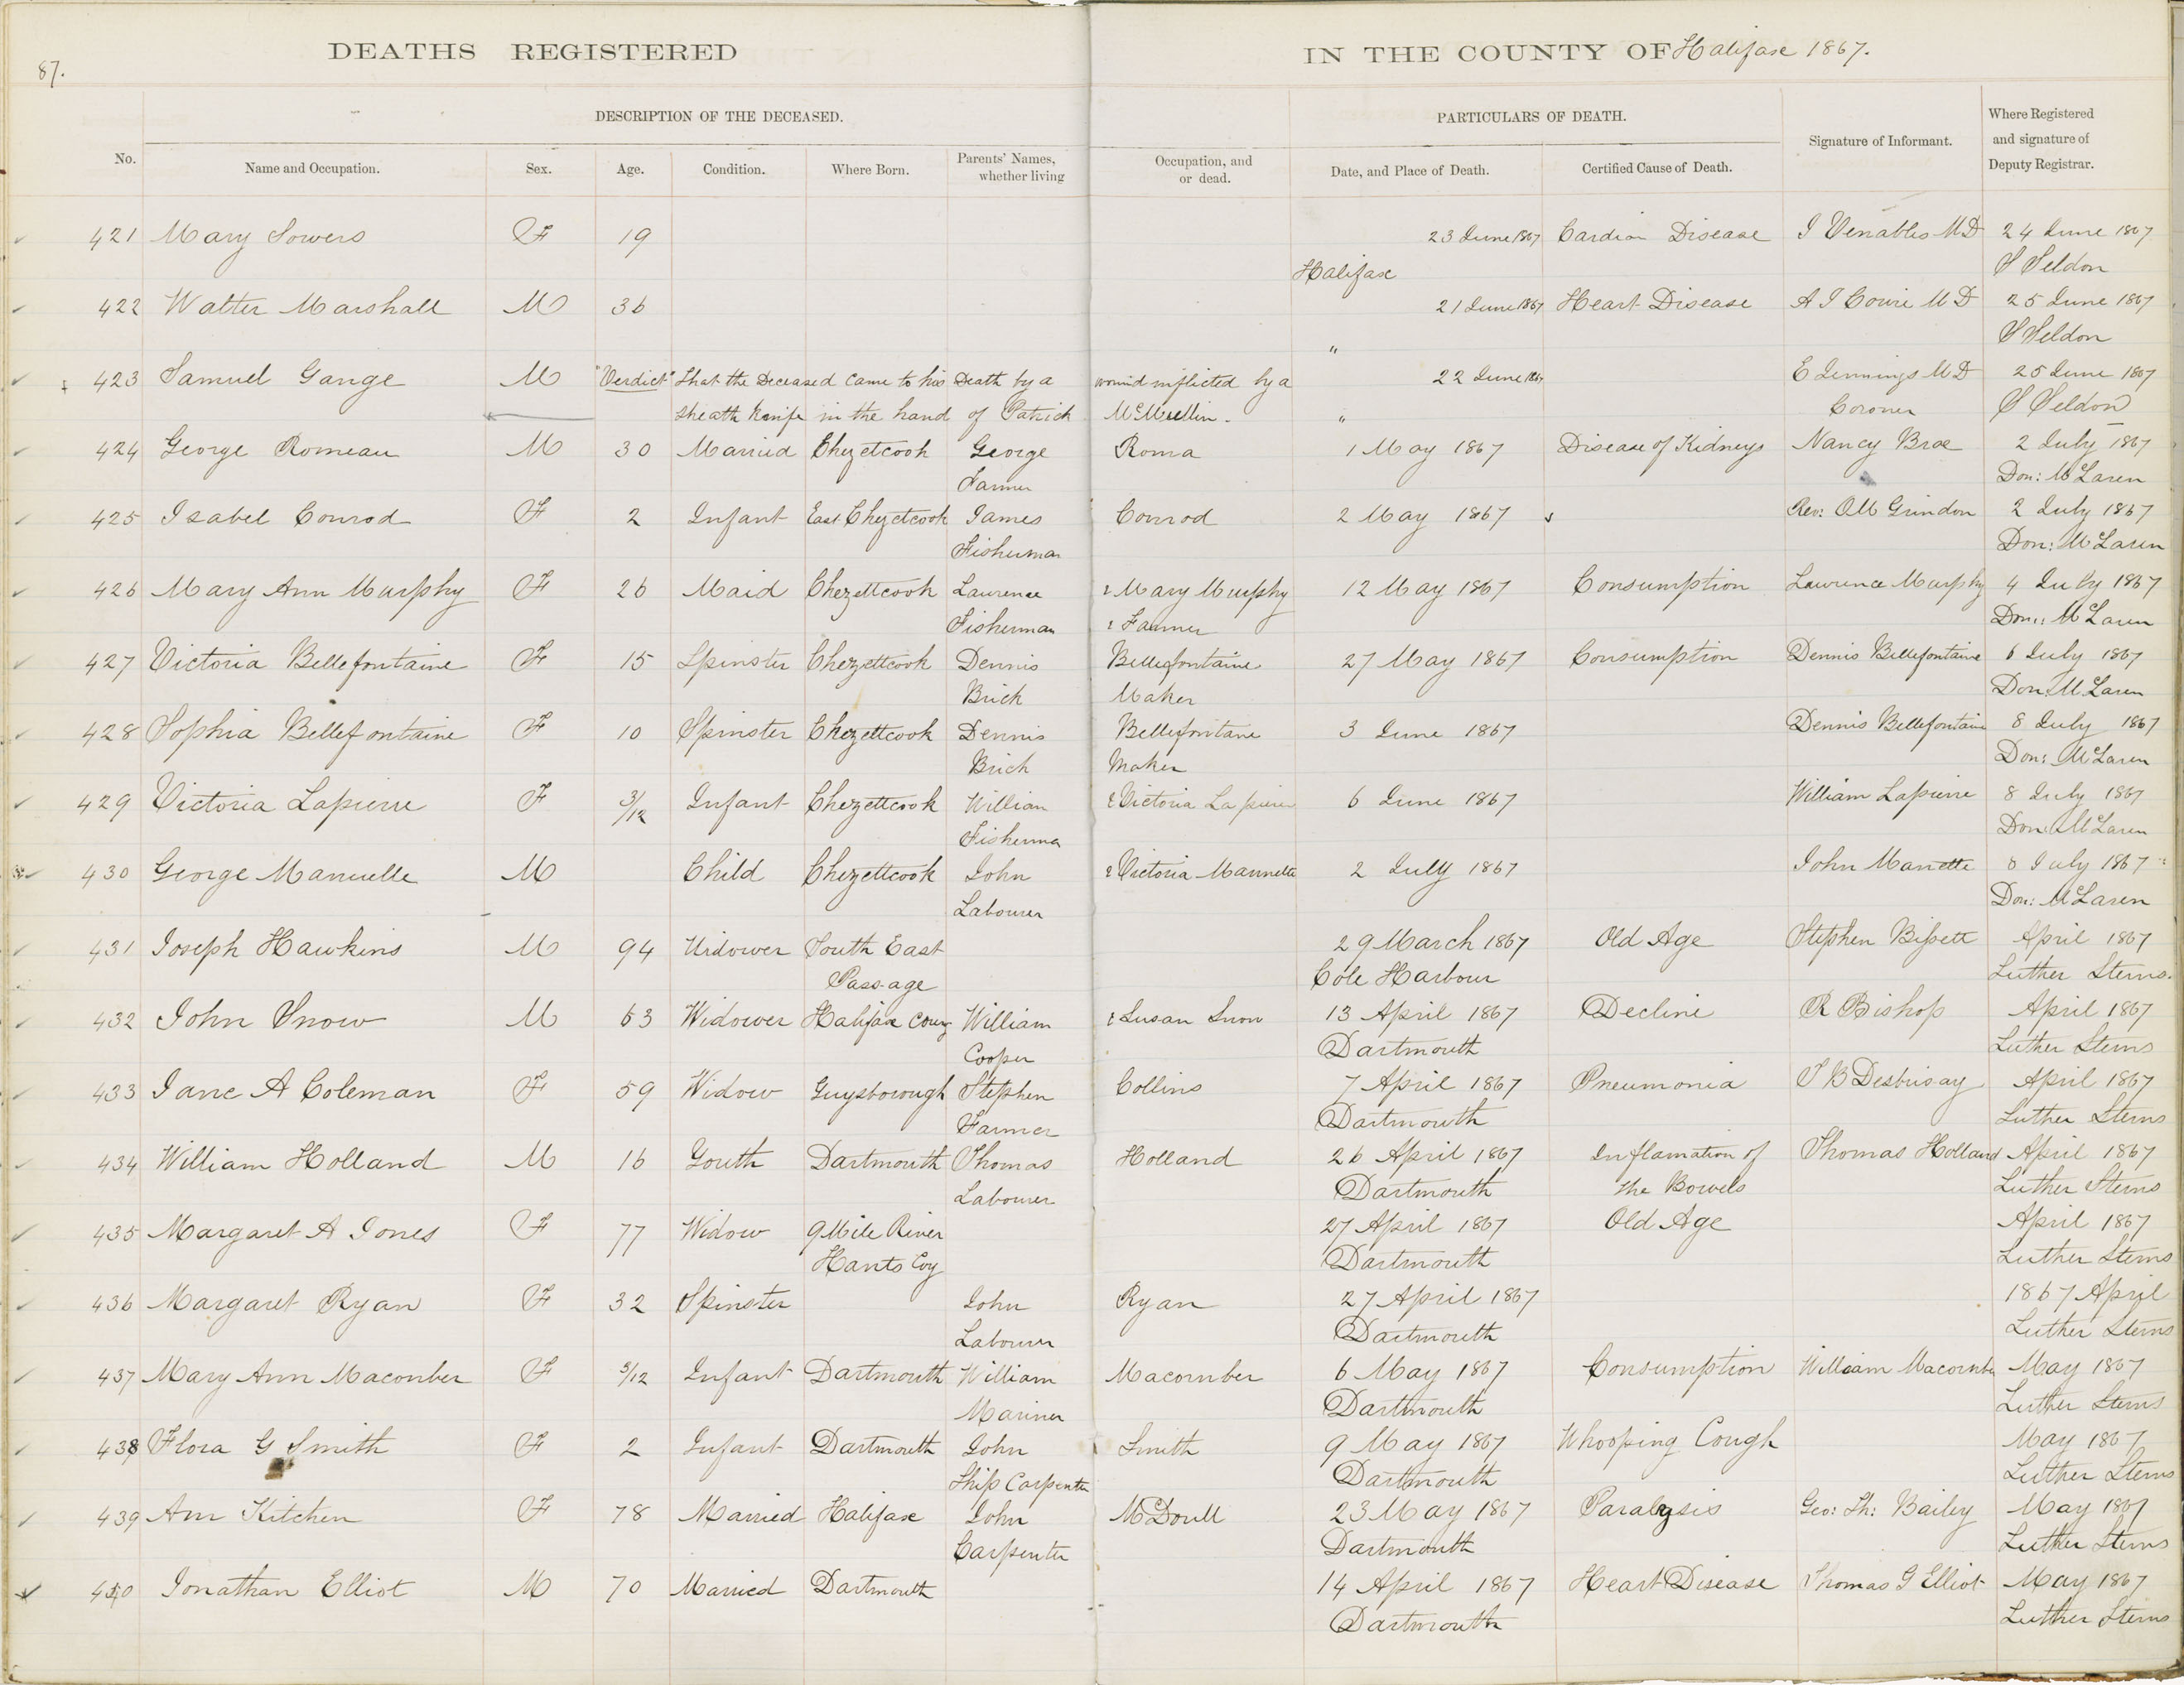 87.
DEATHS REGISTERED IN THE COUNTY OF Halifax 1867.
DESCRIPTION OF THE DECEASED. PARTICULARS OF DEATH.
No. Name and Occupation. Sex. Age. Condition. Where Born. Parents' Names, whether living Occupation, and or dead. Date, and Place of Death. Certified Cause of Death. Signature of Informant. Where Registered and signature of Deputy Registrar.
421 Mary Sowers F 19 23 June 1867 Disease J Venables MD 24 June 1867
Halifax S Seldon
422 Walter Marshall M 36 21 June 1867 Heart Disease A J Cowie MD 25 June 1867
" S Seldon
423 Samuel Gange M "Verdict" That the Deceased came to his Death by a wound inflicted by a 22 June 1867 E Jennings MD 25 June 1867
sheath knife in the hand of Patrick McMullin. " Coroner S Seldon
424 George Romeau M 30 Married Chezetcook George Roma 1 May 1867 Disease of Kidneys Nancy Brae 2 July 1867
Farmer Don: McLaren
425 Isabel Conrod F 2 Infant East Chezetcook James Conrod 2 May 1867 Rev: OM Grindon 2 July 1867
Fisherman Don: McLaren
426 Mary Ann Murphy F 26 Maid Chezettcook Laurence & Mary Murphy 12 May 1867 Consumption Lawrence Murphy 4 July 1867
Fisherman & Farmer Don: McLaren
427 Victoria Bellefontaine F 15 Spinster Chezettcook Dennis Bellefontaine 27 May 1867 Consumption Dennis Bellefontaine 6 July 1867
Brick Maker Don: McLaren
428 Sophia Bellefontaine F 10 Spinster Chezettcook Dennis Bellefontane 3 June 1867 Dennis Bellefontaine 8 July 1867
Brick Maker Don: McLaren
429 Victoria Lapierre F 3/12 Infant Chezettcook William & Victoria Lapierre 6 June 1867 William Lapierre 8 July 1867
Fisherma Don: McLaren
430 George Manuelle M Child Chezettcook John & Victoria Mannette 2 July 1867 John Manette 8 July 1867
Labourer Don: McLaren
431 Joseph Hawkins M 94 Widower South East 29 March 1867 Old Age Stephen Bissett April 1867
Passage Cole Harbour Luther Sterns.
432 John Snow M 63 Widower Halifax Couny William & Susan Snow 13 April 1867 Decline R Bishop April 1867
Cooper Dartmouth Luther Sterns
433 Jane A Coleman F 59 Widow Guysborough Stephen Collins 7 April 1867 Pneumonia T B Desbrisay April 1867
Farmer Dartmouth Luther Sterns
434 William Holland M 16 Youth Dartmouth Thomas Holland 26 April 1867 Inflamation of Thomas Holland April 1867
Labourer Dartmouth the Bowels Luther Sterns
435 Margaret A Jones F 77 Widow 9 Mile River 27 April 1867 Old Age April 1867
Hants Coy Dartmouth Luther Sterns
436 Margaret Ryan F 32 Spinster John Ryan 27 April 1867 1867 April
Labourer Dartmouth Luther Sterns
437 Mary Ann Macomber F 5/12 Infant Dartmouth William Macomber 6 May 1867 Consumption William Macomber May 1867
Mariner Dartmouth Luther Sterns
438 Flora G Smith F 2 Infant Dartmouth John Smith 9 May 1867 Whooping Cough May 1867
Ship Carpenter Dartmouth Luther Sterns
439 Ann Kitchen F 78 Married Halifax John McDoull 23 May 1867 Paralysis Geo: Th: Bailey May 1867
Carpenter Dartmouth Luther Sterns
440 Jonathan Elliot M 70 Married Dartmouth 14 April 1867 Heart Disease Thomas G Elliot May 1867
Dartmouth Luther Sterns